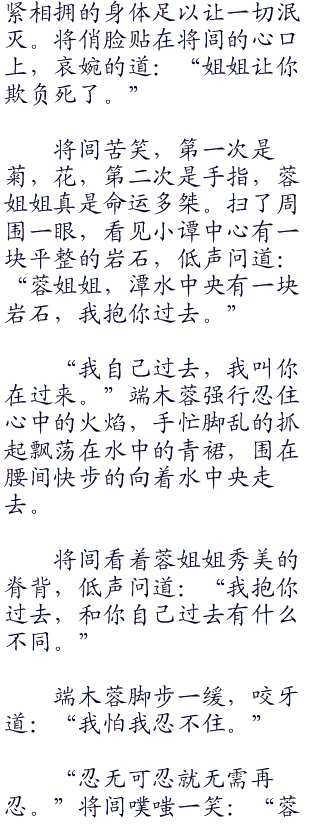 紧相拥的身体足以让一切泯
灭。将俏脸贴在将闾的心口
上，哀婉的道：“姐姐让你
欺负死了。”
将闾苦笑，第一次是
菊，花，第二次是手指，蓉
姐姐真是命运多桀。扫了周
围一眼，看见小谭中心有一
块平整的岩石，低声问道：
“蓉姐姐，潭水中央有一块
岩石，我抱你过去。”
“我自己过去，我叫你
在过来。”端木蓉强行忍住
心中的火焰，手忙脚乱的抓
起飘荡在水中的青裙，围在
腰间快步的向着水中央走
去。
将闾看着蓉姐姐秀美的
脊背，低声问道：“我抱你
过去，和你自己过去有什么
不同。”
端木蓉脚步一缓，咬牙
道：“我怕我忍不住。”
“忍无可忍就无需再
忍。”将闾噗嗤一笑：“蓉